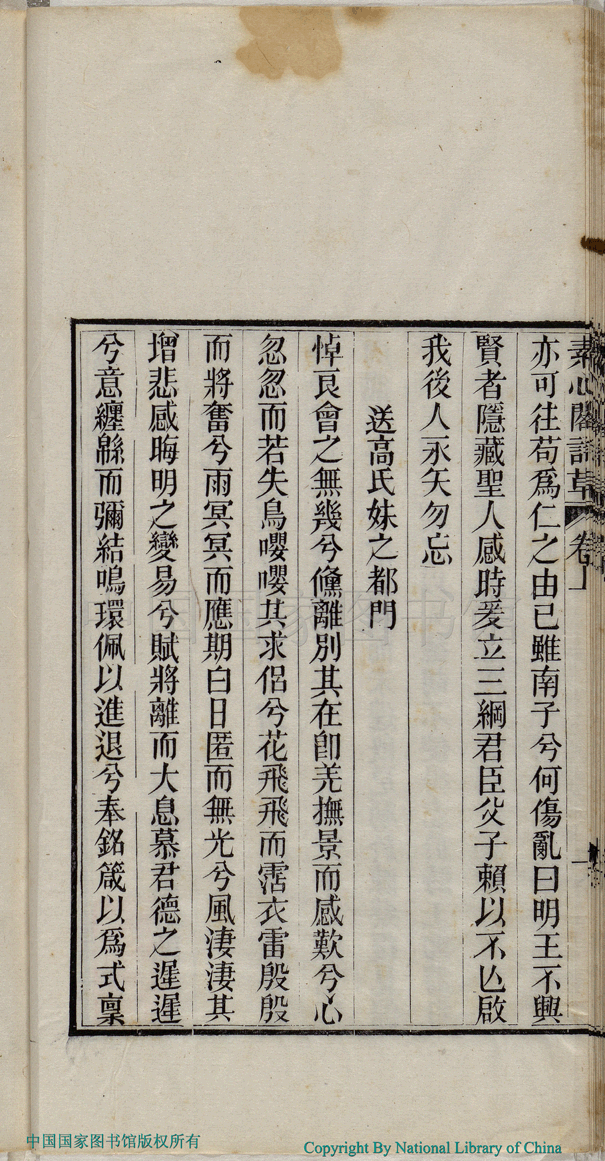 素心閣詩草 卷上
亦可往苟爲仁之由己雖南子兮何傷亂曰明王不興
賢者隱藏聖人感時爰立三綱君臣父子賴以不亾啟
我後人永矢勿忘
送高氏妹之都門
悼良會之無幾兮儵離別其在卽羌撫景而感歎兮心
忽忽而若失鳥嚶嚶其求侶兮花飛飛而霑衣雷殷殷
而將奮兮雨冥冥而應期白日匿而無光兮風淒淒其
增悲感晦明之變易兮賦將離而大息慕君德之遲遲
兮意纏緜而彌結鳴環佩以進退兮奉銘箴以爲式稟
中国国家图书馆
中国国家图书馆版权所有
Copyright By National Library of China